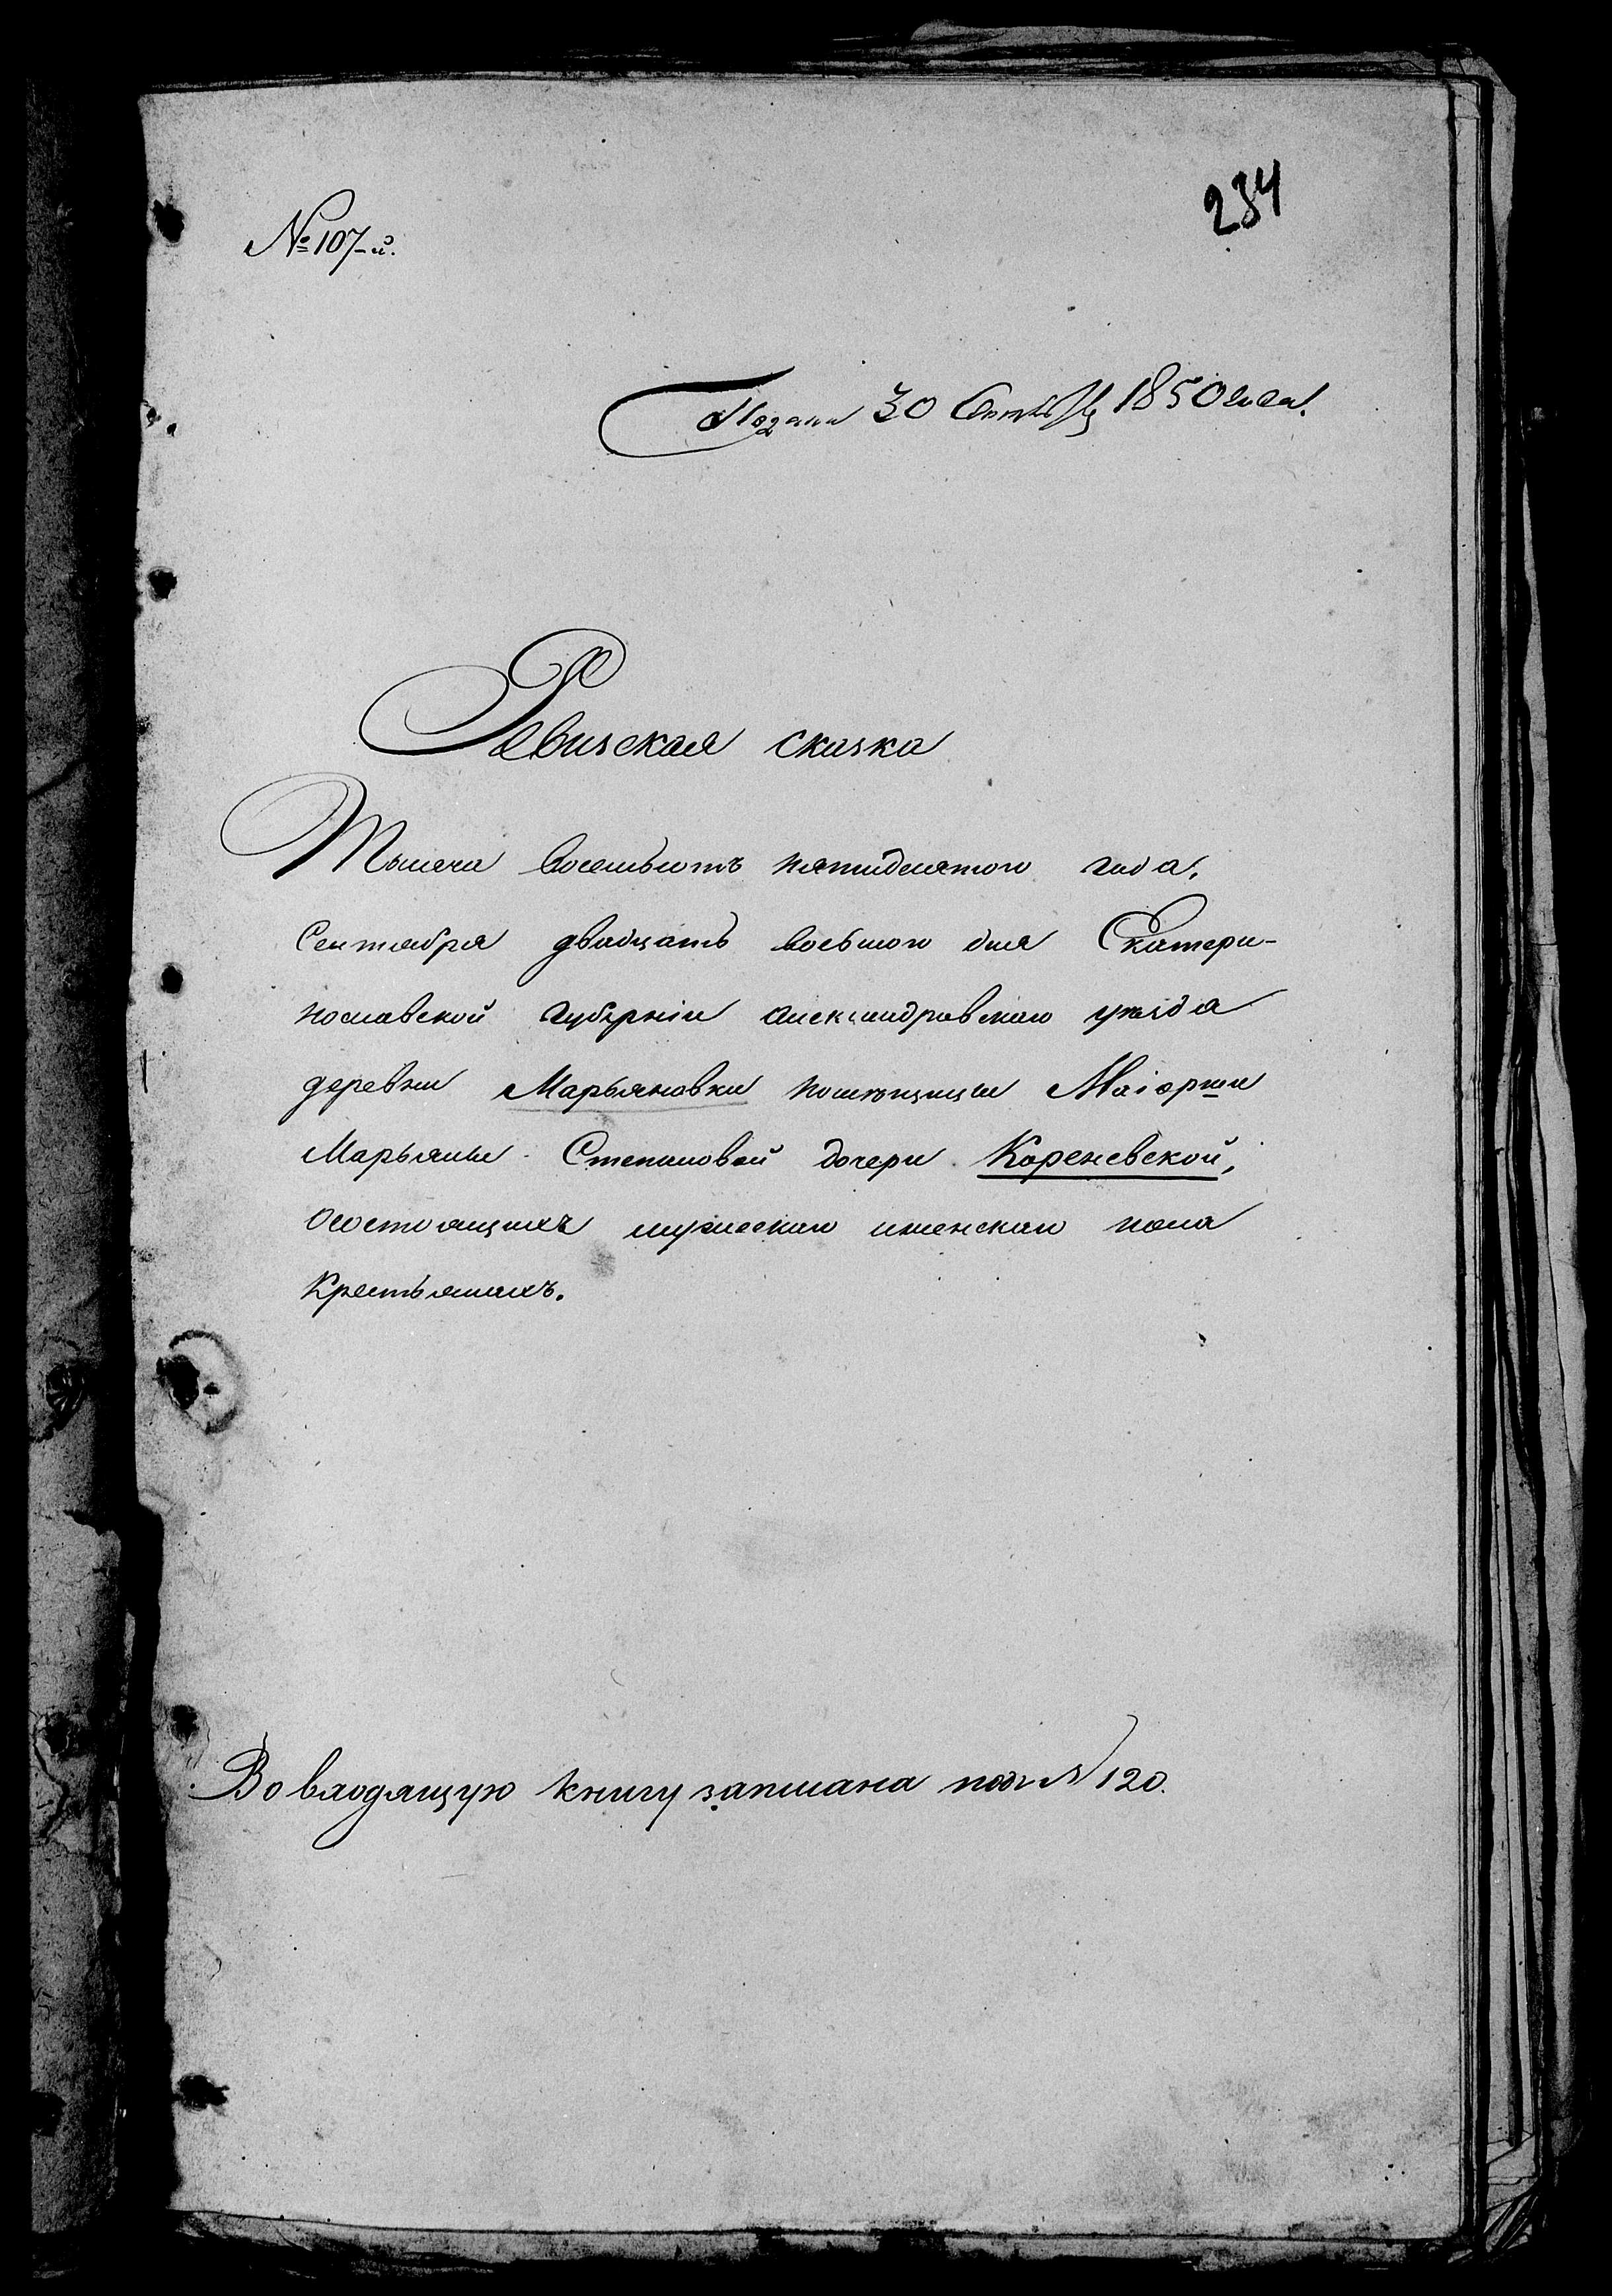 234
№ 107-й.
Подана 30 Сентября 1850 года.
Ревизская сказка
Тысяча восемьсотъ пятидесятого года,
Сентября двадцать восьмого дня Екатери-
нославской губерніи Александровского уѣзда
деревни Марьяновки помѣщицы Маіорши
Марьяны Степановой дочери Кореневской,
осостоящихъ мужескаго иженскаго пола
Крестьянахъ.
Во входящую книгу записана подъ № 120.